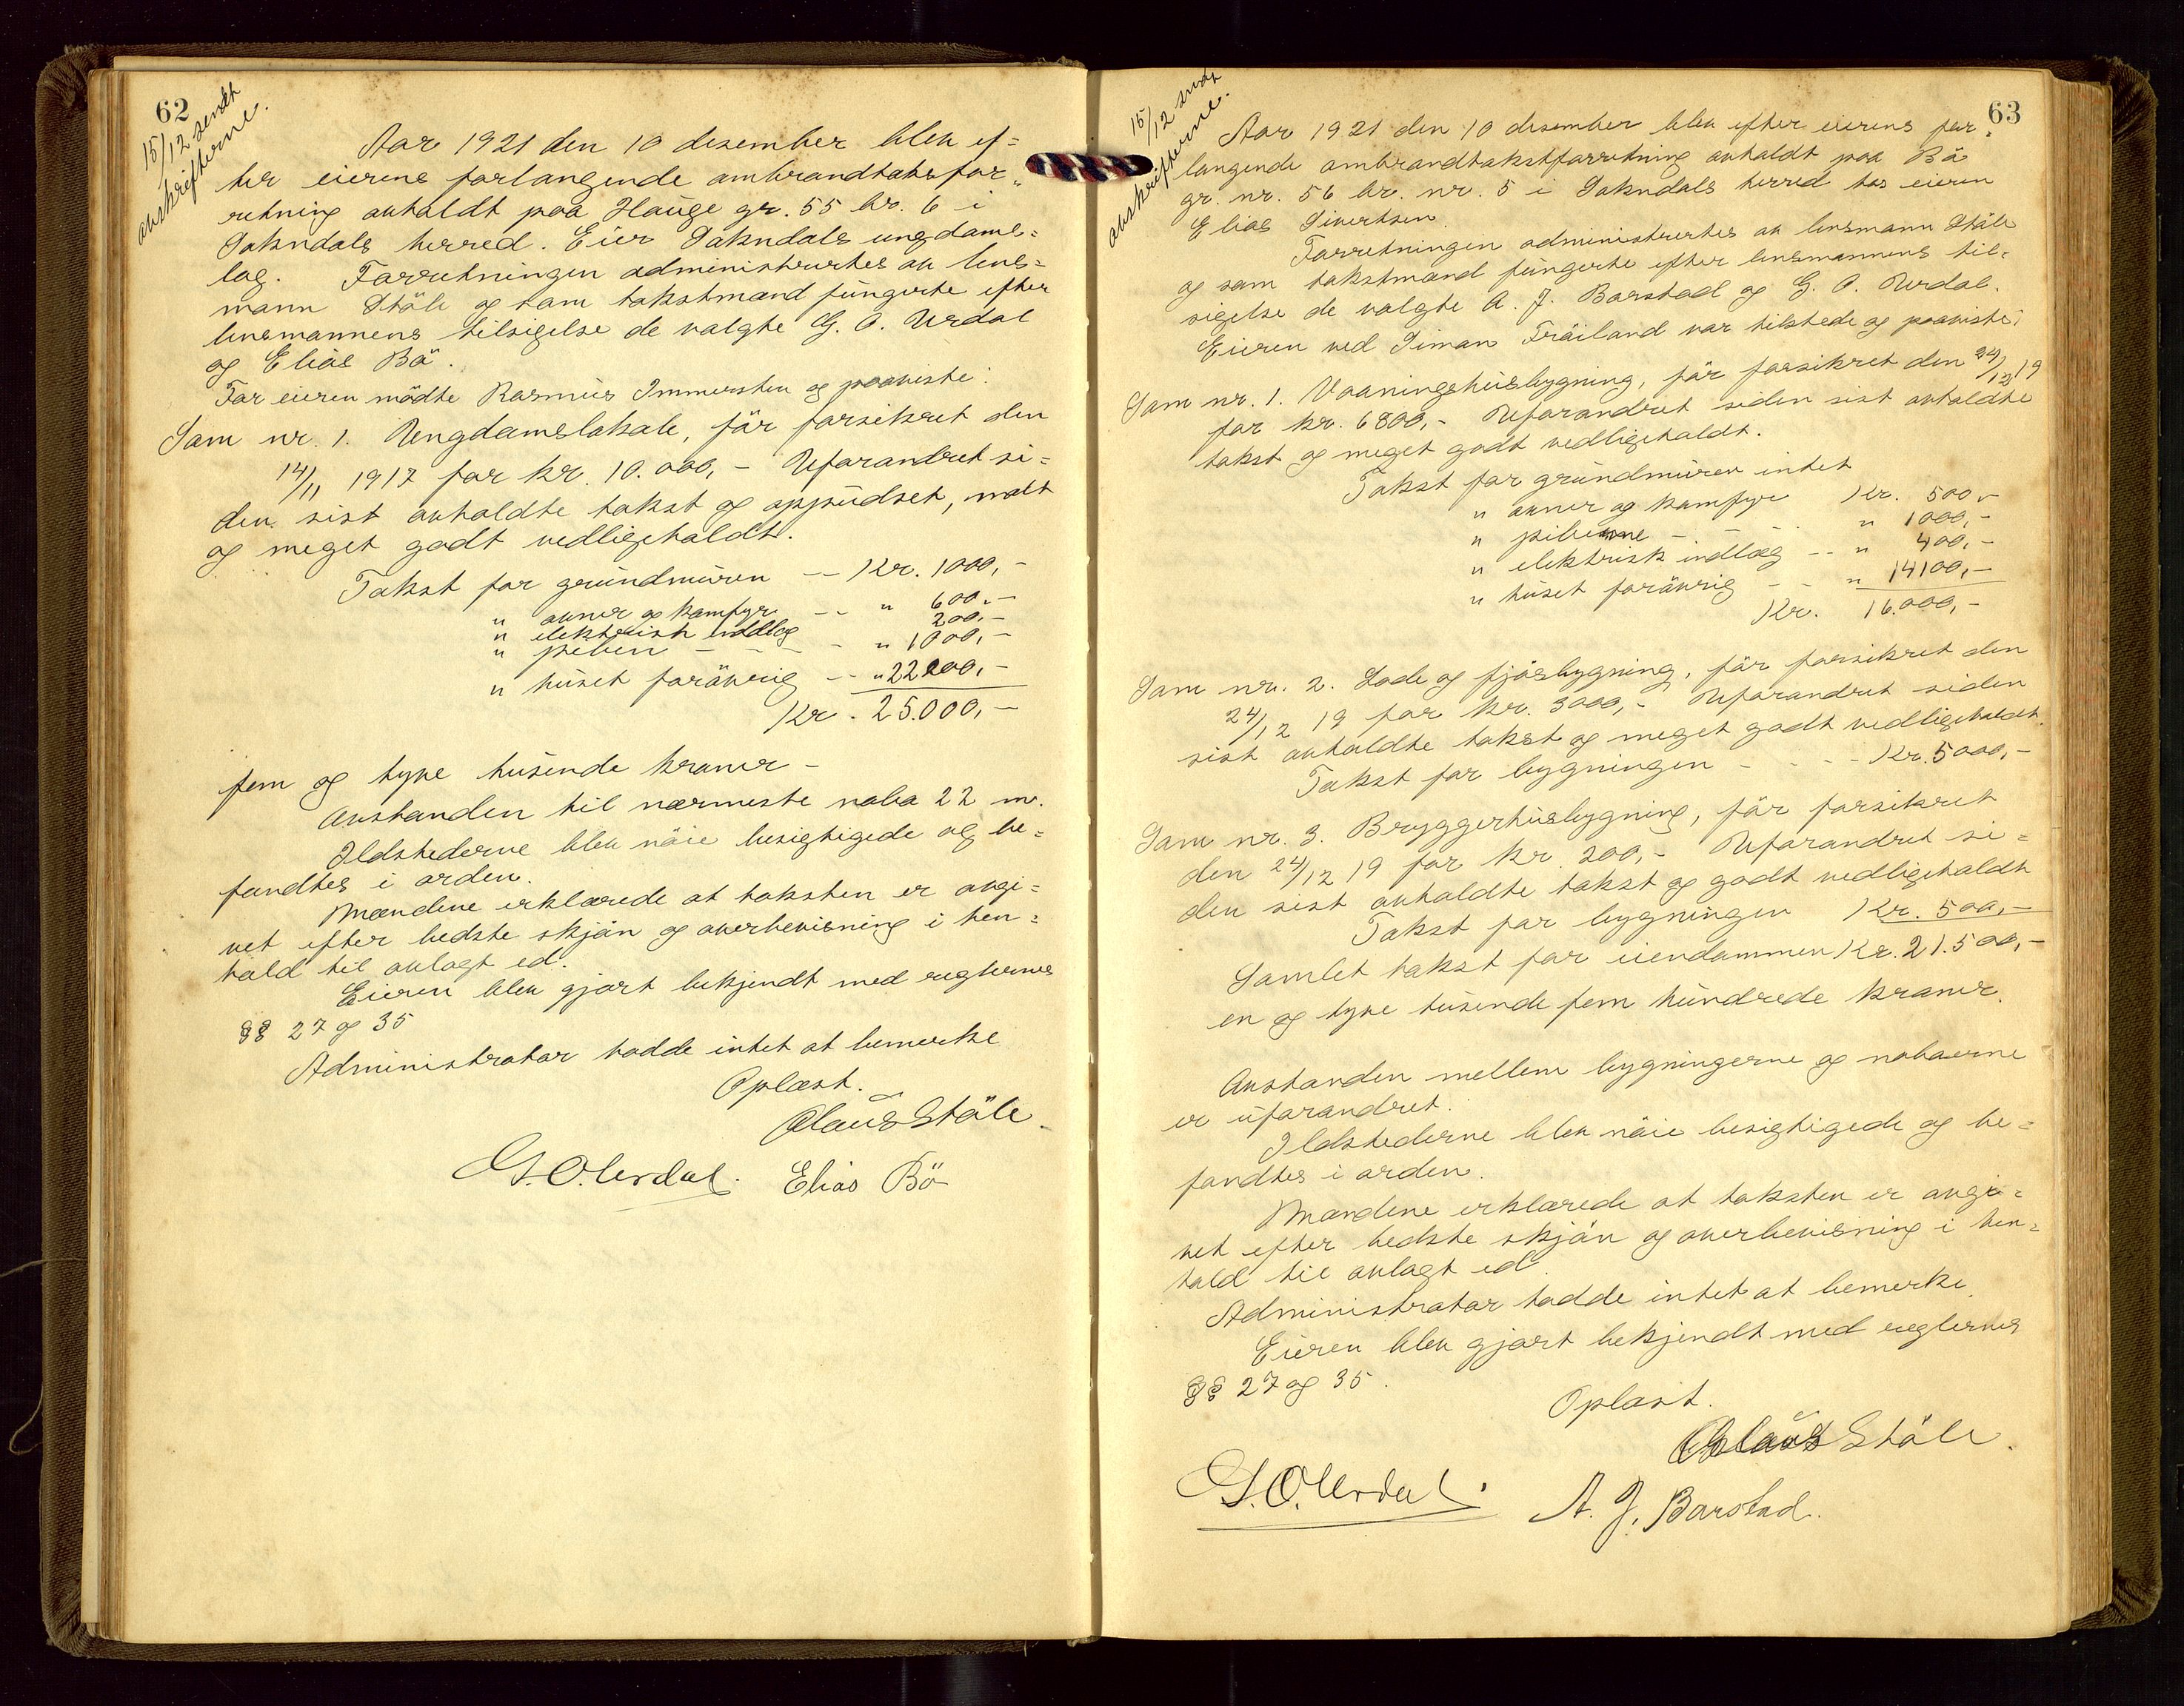 62
15/12 sendt
avskrifterne.
Aar 1921 den 10 desember blev ef=
ter eierens forlangende ombrandtakstfor=
retning avholdt paa Hauge gr. 55 br. 6 i
Sokndals herred. Eier Sokndals ungdoms=
lag. Forretningen administrertes av lens=
mann Ståle og som takstmænd fungerte efter
lensmannens tilsigelse de valgte G. O. Urdal
og Elias Bö.
For eieren mödte Rasmus Immersten og paaviste:
Som nr. 1. Ungdomslokale, för forsikret den
14/11 1917 for kr. 10.000,- Uforandret si=
den sist avholdte takst og oppudset, malt
og meget godt vedlikeholdt.
Takst for grundmuren -- Kr. 1000,-
" ovner og komfyr -- " 600,-
" elektrisk indlæg 200,-
" piben - - - - " 1000,-
" huset forövrig -- " 22200,-
Kr. 25.000,-
fem og tyve tusende kroner -
Avstanden til nærmeste nabo 22 m.
Ildstederne blev nöie besigtigede og be=
fandtes i orden.
Mændene erklærede at taksten er avgi=
vet efter bedste skjön og overbevisning i hen=
hold til avlagt ed.
Eieren blev gjort bekjendt med reglernes
§§ 27 og 35
Administrator hadde intet at bemerke
Oplæst.
Olaus Ståle.
G. O. Urdal. Elias Bö
63
15/12 sendt
avskrifterne.
Aar 1921 den 10 desember blev efter eierens for=
langende ombrandtakstforretning avholdt paa Bö
gr. nr. 56 br. nr. 5 i Sokndals herred hos eieren
Elias Sivertsen.
Forretningen administrertes av lensmann Ståle
og som takstmænd fungerte efter lensmannens til=
sigelse de valgte A. J. Barstad og G. O. Urdal.
Eieren ved Simon Fröiland var tilstede og paaviste:
Som nr. 1. Vaaningshusbygning, för forsikret den 24/12 19
for kr. 6800,- Uforandret siden sist avholdte
takst og meget godt vedlikeholdt.
Takst for grundmuren intet
" ovner og komfyr Kr. 500,-
" piberne - - - " 1000,-
" elektrisk indlæg -- " 400,-
" huset forövrig - - " 14100,-
Kr. 16.000,-
Som nr. 2. Lade og fjösbygning, för forsikret den
24/12 19 for kr. 3000,- Uforandret siden
sist avholdte takst og meget godt vedlikeholdt.
Takst for bygningen - - - - Kr. 5000,-
Som nr. 3. Bryggerhusbygning, för forsikret
den 24/12 19 for kr. 200,- Uforandret si=
den sist avholdte takst og godt vedlikeholdt
Takst for bygningen Kr. 500,-
Samlet takst for eiendommen Kr. 21.500,-
en og tyve tusende fem hundrede kroner.
Avstanden mellem bygningerne og naboerne
er uforandret.
Ildstederne blev nöie besigtigede og be=
fandtes i orden.
Mændene erklærede at taksten er avgi=
vet efter bedste skjön og overbevisning i hen=
hold til avlagt ed.
Administrator hadde intet at bemerke.
Eieren blev gjort bekjendt med reglernes
§§ 27 og 35.
Oplæst.
Olaus Ståle.
G. O. Urdal. A. J. Barstad.